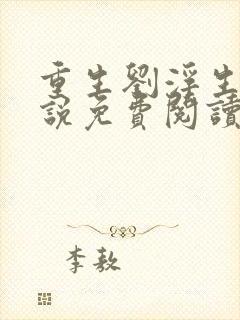 重生劉淫生
說免費閱讀
李敖